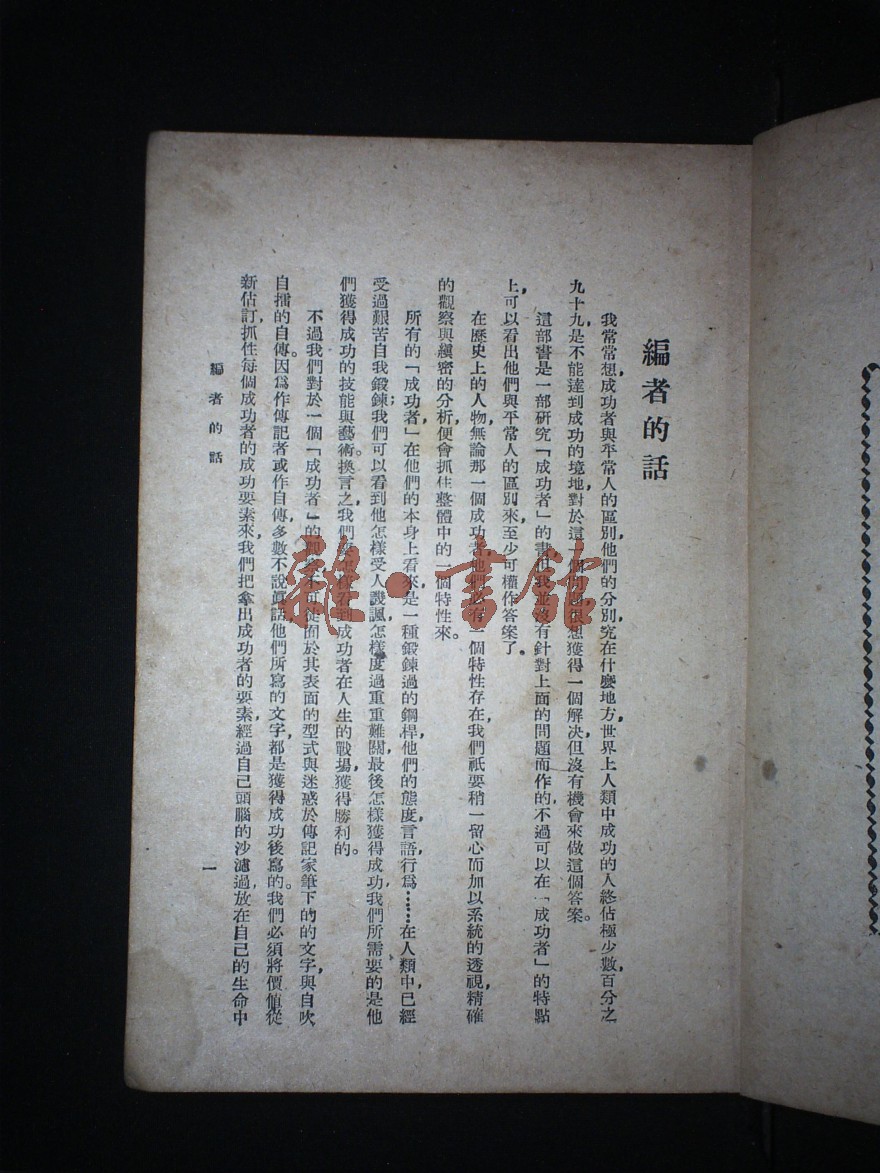 編者的話
我常常想,成功者與平常人的區別,他們的分別究在什麼地方,世界上人類中成功的人終佔極少數,百分之
九十九是不能達到成功的境地,對於這一個問題很想獲得一個解決,但沒有機會來做這個答案。
這部書是一部研究「成功者」的書,但我並沒有針對上面的問題而作的,不過可以在「成功者」的特點
上,可以看出他們與平常人的區別來,至少可權作答案了。
在歷史上的人物,無論那一個成功者他們必有一個特性存在,我們祇要稍一留心而加以系統的透視,精確
的觀察,與縝密的分析,便會抓住整體中的一個特性來。
所有的「成功者」在他們的本身上看來,是一種鍛鍊過的鋼桿,他們的態度,言語,行為……在人類中已經
受過艱苦自我鍛鍊;我們可以看到他怎樣受人譏諷,怎樣度過重重難關,最後怎樣獲得成功,我們所需要的是他
們獲得成功的技能與藝術。換言之,我們看到成功者在人生的戰場獲得勝利的。
不過我們對於一個「成功者」的觀察不可從面於其表面的型式與迷惑於傳記家筆下的的文字,與自吹
自擂的自傳。因為作傳記者或作自傳,多數不說眞話,他們所寫的文字,都是獲得成功後寫的。我們必須將價值從
新估訂,抓性每個成功者的成功要素來,我們把拿出成功者的要素,經過自己頭腦的沙濾過,放在自己的生命中
編者的話
一
雜·書館